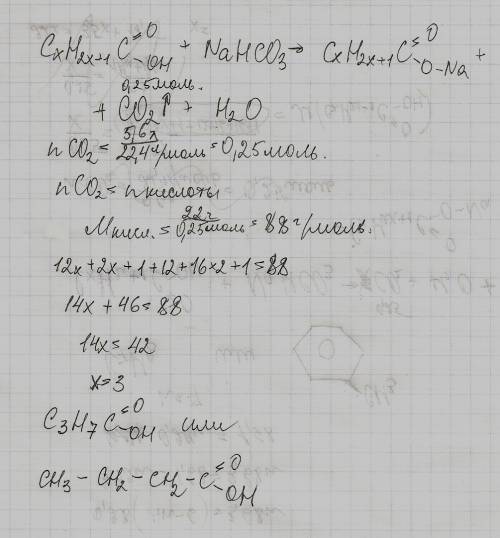 CxH2x+1 C =O OH + NaHCO3 → CxH2x+1 C =O O-Na +
0,25моль.
+ CO2↑ + H2O
n CO2 = 5,6л / 22,4л/моль = 0,25моль.
n CO2 = n кислоты
Mкисл. = 22г / 0,25моль = 88г/моль.
12x+2x+1+12+16×2+1=88
14x + 46 = 88
14x = 42
x=3
C3H7 C =O OH или
CH3 - CH2 - CH2 - C =O OH